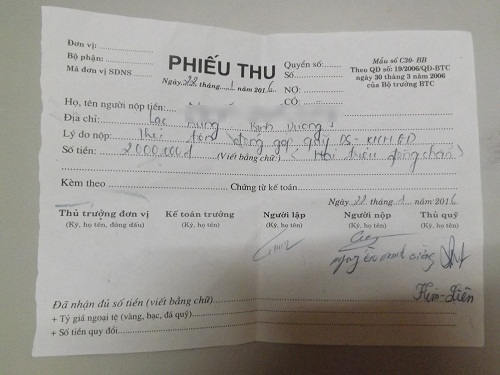 Đơn vị:
Bộ phận:
Mã đơn vị SDNS:
PHIẾU THU
Ngày 22 tháng 1 năm 2016
Quyển số:
Số:
NỢ:
CÓ:
Mẫu số C30- BB
Theo QĐ số: 19/2006/QĐ-BTC
ngày 30 tháng 3 năm 2006
của Bộ trưởng BTC
Họ, tên người nộp tiền:
Địa chỉ: Lạc Hưng
Lý do nộp: đóng góp quỹ DS - KHHGĐ
Số tiền: 2000.000đ (Viết bằng chữ) (Hai triệu đồng chẵn)
Kèm theo Chứng từ kế toán:
Ngày 22 tháng 1 năm 2016
Thủ trưởng đơn vị Kế toán trưởng Người lập Người nộp Thủ quỹ
(Ký, họ tên, đóng dấu) (Ký, họ tên) (Ký, họ tên) (Ký, họ tên) (Ký, họ tên)
Đã nhận đủ số tiền (viết bằng chữ)
+ Tỷ giá ngoại tệ (vàng, bạc, đá quý)
+ Số tiền quy đổi